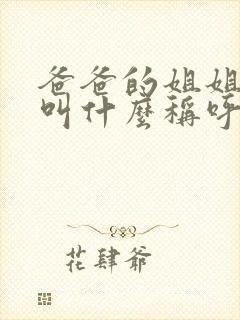 爸爸的姐姐
叫什麼稱呼
花肆爺